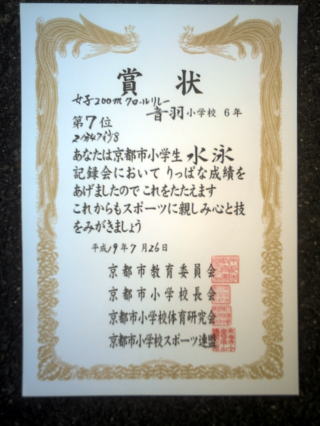 賞状
女子200mクロールリレー
音羽小学校 6年
第7位
あなたは京都市小学生水泳
記録会において りっぱな成績を
あげましたので これをたたえます
これからもスポーツに親しみ心と技
をみがきましょう
平成19年7月26日
京都市教育委員会
京都市小学校長会
京都市小学校体育研究会
京都市小学校スポーツ連盟